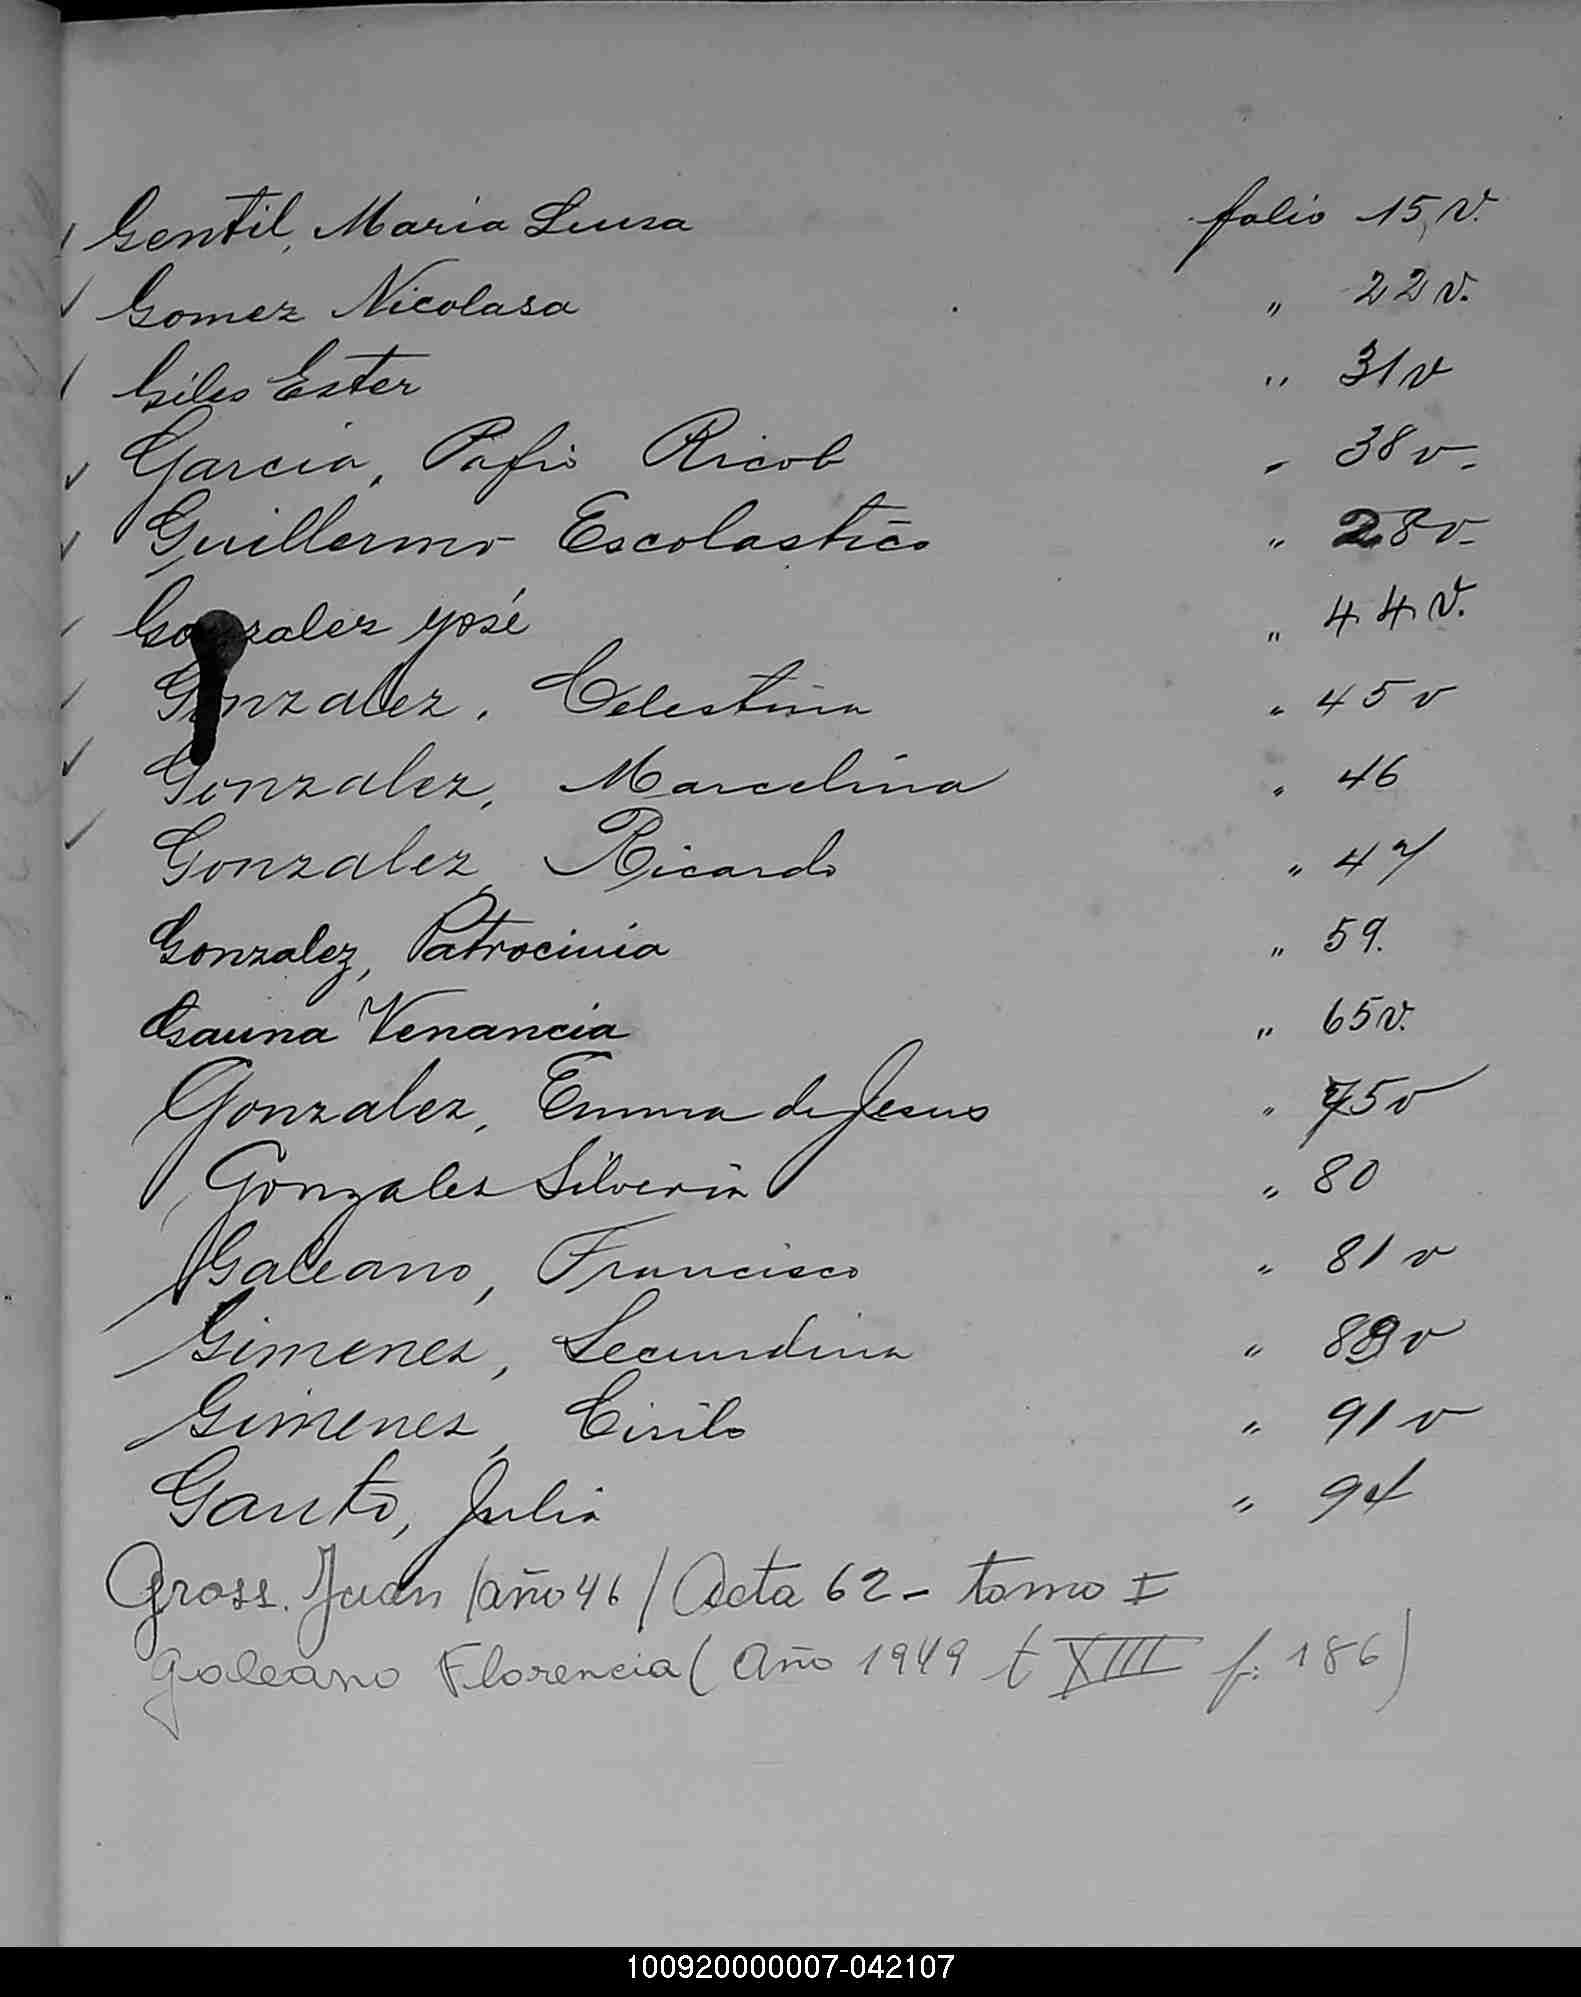 Gentil, Maria Luisa folio 15 v.
Gomez Nicolasa " 22 v.
Giles Ester " 31 v
Garcia, Pafio Ricob " 38 v.
Guillermo Escolastico " 28 v.
Gonzalez José " 44 v.
Gonzalez, Celestina " 45 v
Gonzalez, Marcelina " 46
Gonzalez, Ricardo " 47
Gonzalez, Patrocinia " 59.
Gauna Venancia " 65 v.
Gonzalez, Emma de Jesus " 75 v
Gonzalez Silveria " 80
Galeano, Francisco " 81 v
Gimenez, Secundina " 89 v
Gimenez, Cirilo " 91 v
Gauto, Julia " 94
Gross. Juan /año 46/ Acta 62 - tomo I
Galeano Florencia (Año 1949 t XIII f: 186)
100920000007-042107